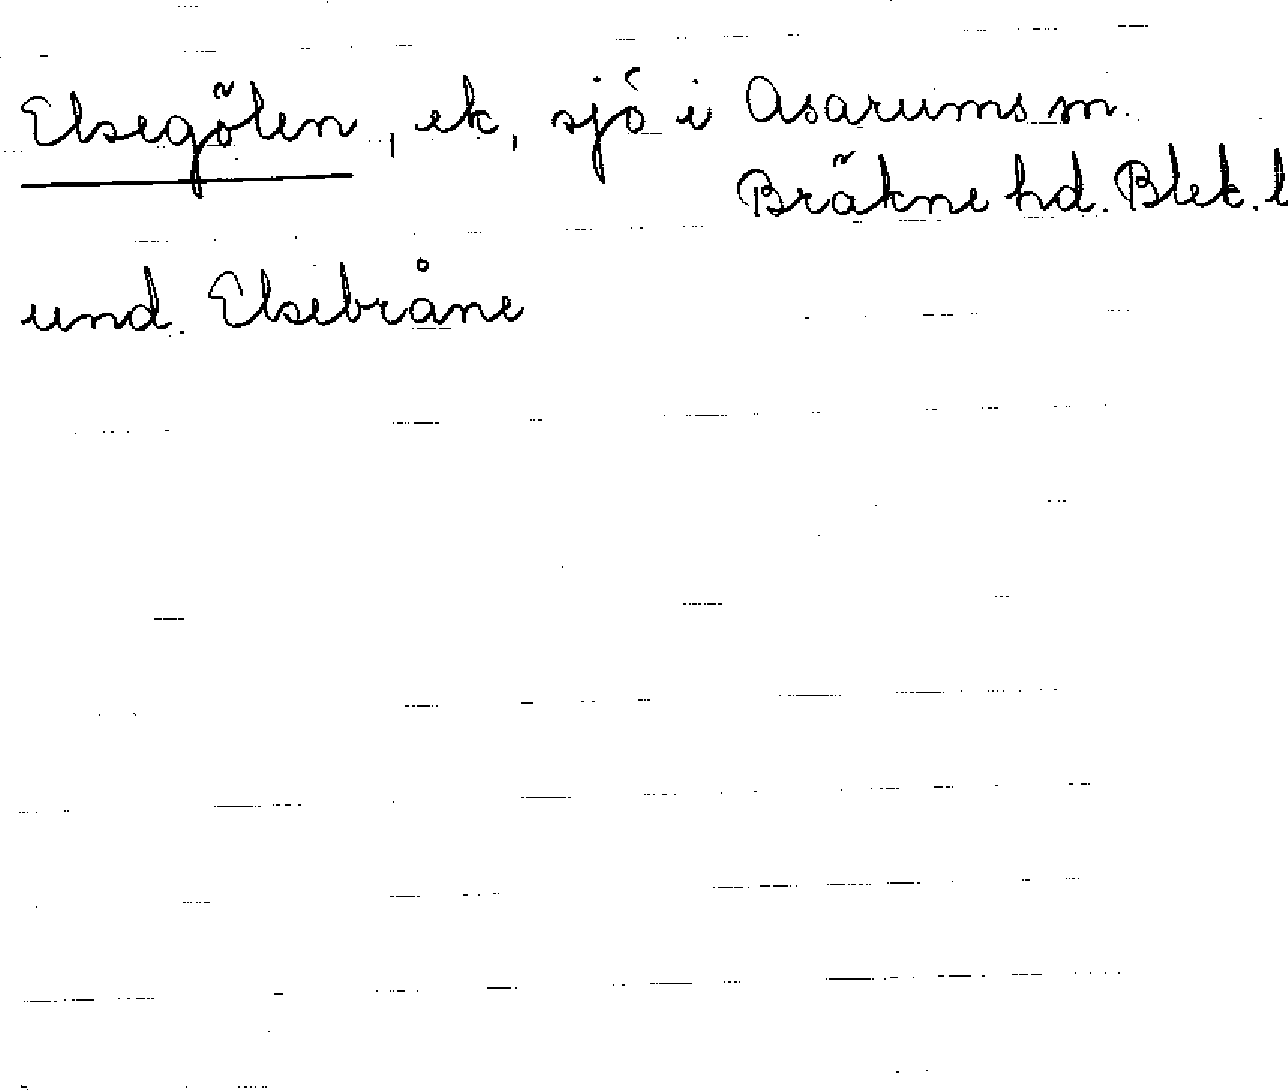 Elsegölen, ek, sjö i Asarums sn.
Bräkne hd. Blek. l
und. Elsebråne